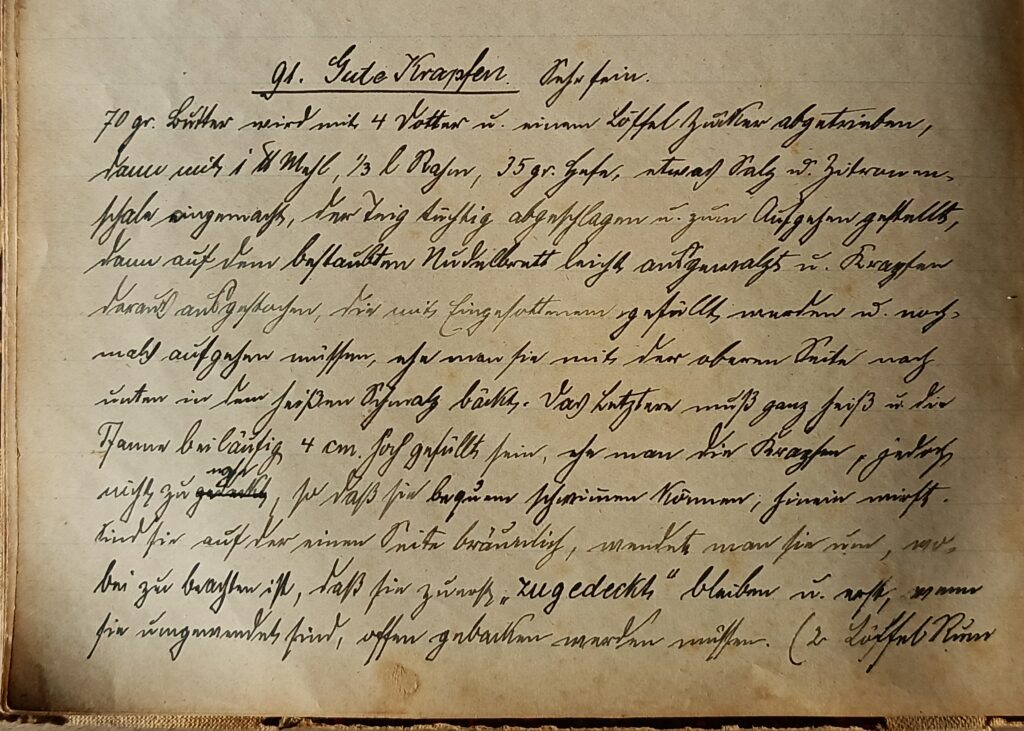 91. Gute Krapfen. Sehr fein.
70 gr. Butter wird mit 4 Dotter u. einem Löffel Zucker abgetrieben,
dann mit 1 ℔ Mehl, 1/3 l Rahm, 35 gr. Hefe, etwas Salz u. Zitronen-
schale eingemacht, der Teig tüchtig abgeschlagen u. zum Aufgehen gestellt,
dann auf dem bestaubten Nudelbrett leicht ausgewalzt u. Krapfen
daraus ausgestochen, die mit Eingesottenem gefüllt werden u. noch-
mals aufgehen müssen, ehe man sie mit der oberen Seite nach
unten in dem heißen Schmalz bäckt. Das Letztere muß ganz heiß u. die
Pfanne beiläufig 4 cm. hoch gefüllt sein, ehe man die Krapfen, jedoch
nicht zu nahe, so daß sie bequem schwimmen können, hinein wirft.
Sind sie auf der einen Seite bräunlich, wendet man sie um, wo-
bei zu beachten ist, daß sie zuerst „zugedeckt" bleiben u. erst, wenn
sie umgewendet sind, offen gebacken werden müssen. (2 Löffel Rum